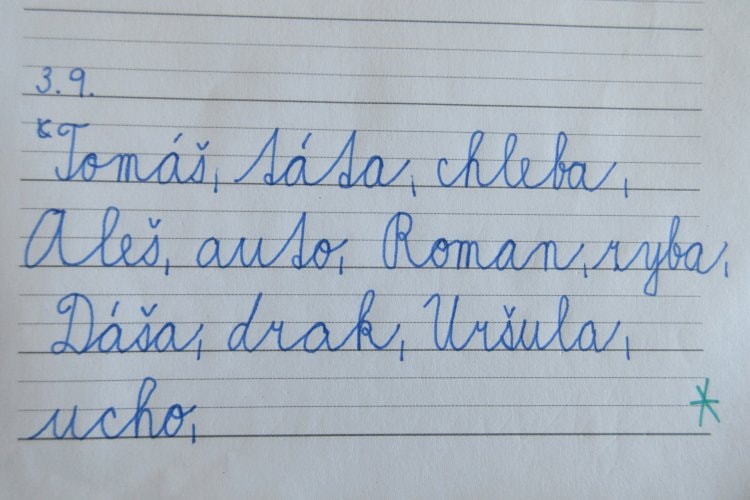 3.9.
Tomáš, táta, chleba,
Aleš, auto, Roman, ryba,
Dáša, drak, Uršula,
ucho,